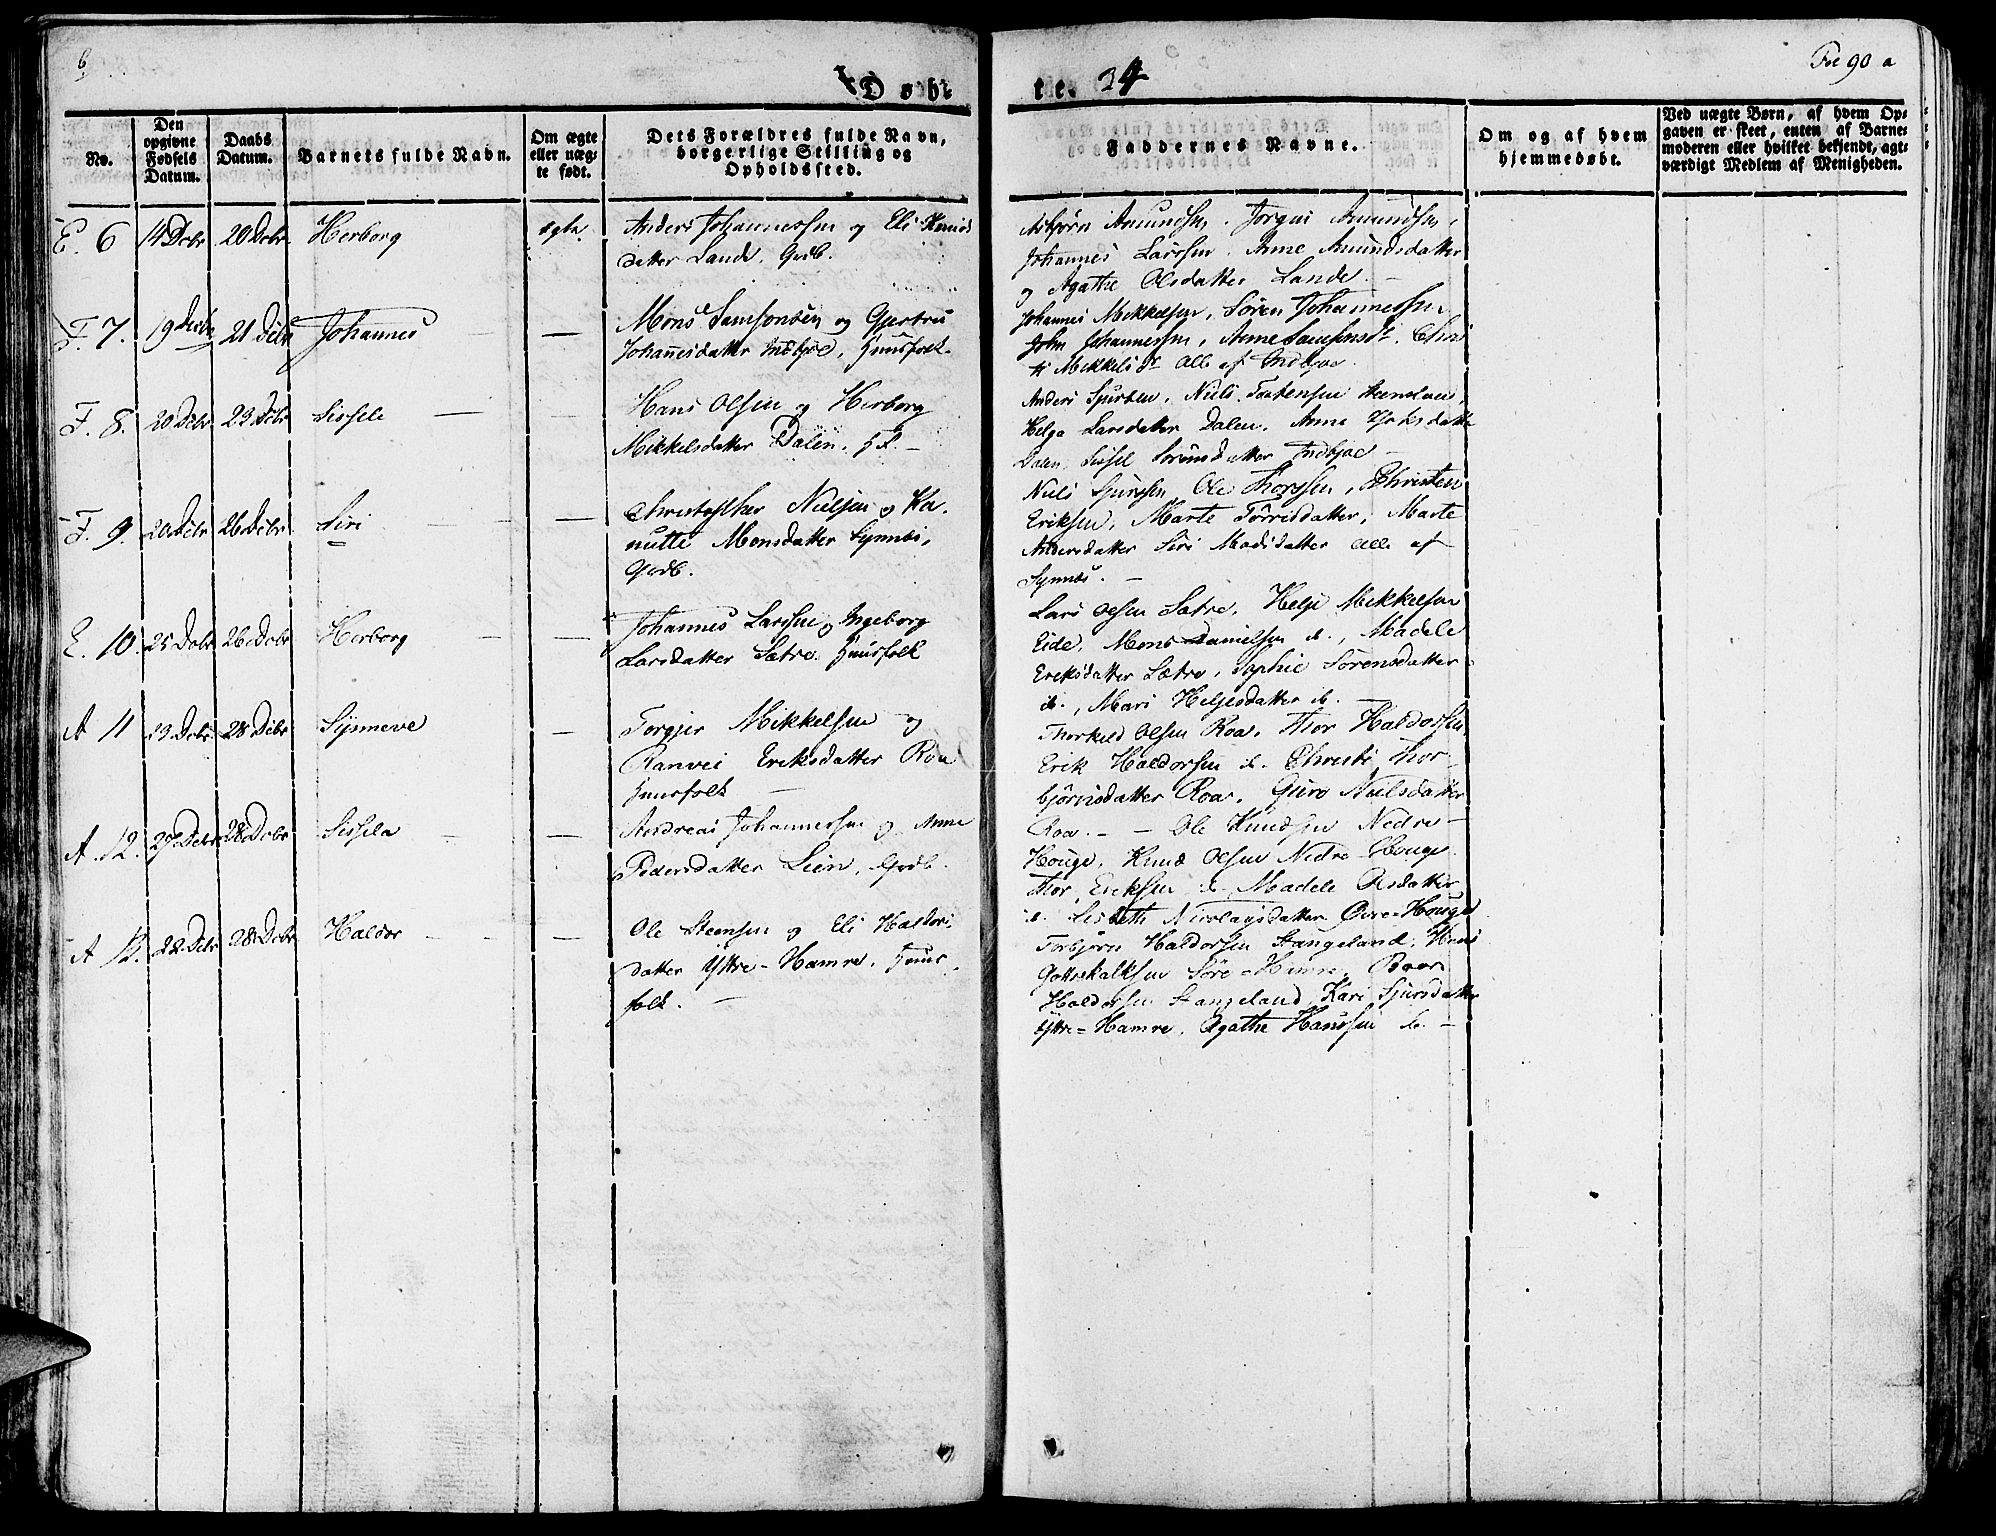 Døb
te. 34
Fol 90 a
No.
Den opgivne Fødsels Datum.
Daabs Datum.
Barnets fulde Navn.
Om ægte eller uægte født.
Dets Forældres fulde Navn, borgerlige Stilling og Opholdssted.
Faddernes Navne.
Om og af hvem hjemmedøbt.
Ved uægte Børn, af hvem Opgaven er skeet, enten af Barnemoderen eller hvilket bekjendt, agtværdigt Medlem af Menigheden.
E. 6 14 Dcbr 20 Dcbr. Herborg ægte.
Anders Johannessen og Eli Knuds
datter Lande, Gdb.
Asbjørn Amundsen, Torgui Amundsen,
Johannes Larssen, Anne Amundsdatter
og Agathe Olsdatter Lande. –
F. 7. 19 Decbr 21 Dcbr Johannes —
Mons Samsonsen og Gjertrud
Johannesdatter Indbjoe, Huusfolk.
Johannes Mikkelsen, Søren Johannessen
John Johannessen, Anne Samsonsdr, Chris
ti Mikkelsdr Alle af Indbjoe.
F. 8. 20 Dcbr 23 Dcbr Sissele —
Hans Olsen og Herborg
Mikkelsdatter Dalen, HF. –
Anders Sjursen, Niels
Helga Larsdatter Dalen, Anne
Dalen, Sissel Sørensdatter Indbjoe –
F. 9. 20 Dcbr 26 Dcbr Siri —
Christopher Nielsen og Ka-
nutte Monsdatter Synnes,
Gdb.
Niels Sjurssen, Ole Thorssen, Christen
Eriksen, Marte Torrisdatter, Marte
Andersdatter Siri Madsdatter alle af
Synnes. –
E. 10. 25 Dcbr 26 Dcbr Herborg —
Johannes Larssen og Ingeborg
Larsdatter Sætre. Huusfolk
Lars Olsen Sætre, Helje Mikkelsen
Eide, Mons Danielsen do., Madele
Eriksdatter Sætre, Sophie Sørensdatter
do., Mari Heljesdatter do.
A 11 19 Dcbr 28 Dcbr Synneve —
Torgjer Mikkelsen og
Ranvei Eriksdatter Roa
Huusfolk —
Thorkild Olsen Roa, Thor Haldorsen
Erik Haldorsen do. Christi Thor-
bjørnsdatter Roa, Guro Nielsdatter
Roa. – –
A. 12. 27 Dcbr 28 Dcbr Sissela —
Andreas Johannessen og Anne
Pedersdatter Lien, Gdb.
Ole Knudsen Nedre
Houge, Knud Olsen Nedre Houge
Thor Eriksen do. Madele Olsdatter
do. Lisbeth Nicolaysdatter Øvre-Houge
A 13. 22 Dcbr 28 Dcbr Haldor —
Ole Steensen og Eli Haldors-
datter Yttre-Hamre, Huus-
folk. —
Torbjørn Haldorsen Stangeland, Hans
Gottskalksen Søre-Hamre, Baar
Haldorsen Stangeland, Kari Sjursdatter
Yttre-Hamre, Agathe Hanssen do. –